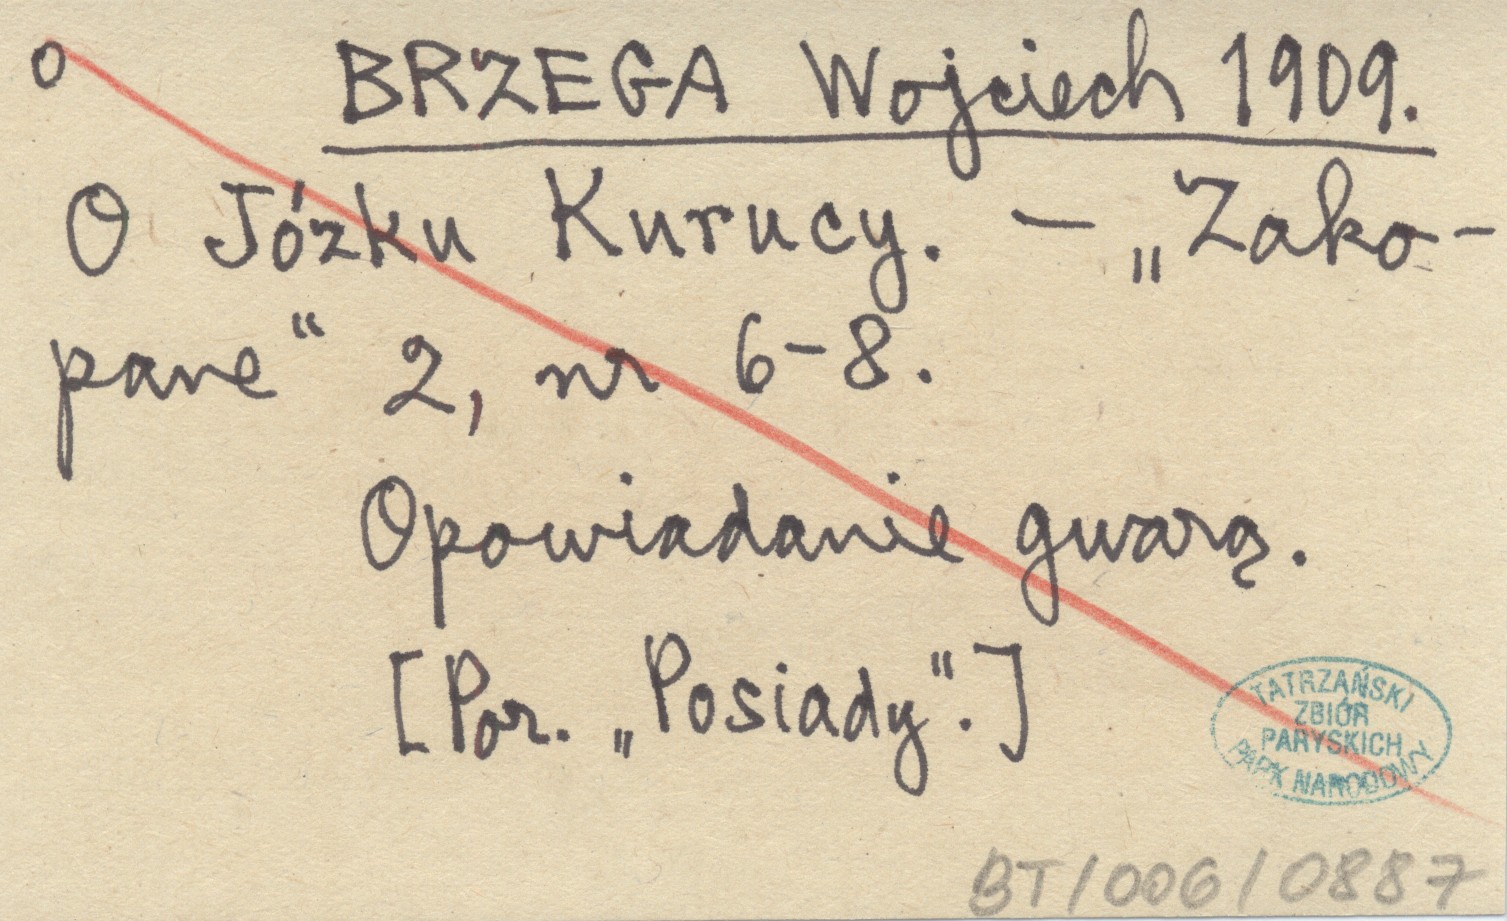 o BRZEGA Wojciech 1909.
O Józku Kurucy. – „Zako-
pane“ 2, nr 6–8.
Opowiadanie gwarą.
[Por. „Posiady“.]
TATRZAŃSKI
ZBIÓR
PARYSKICH
PARK NARODOWY
BT/006/0887